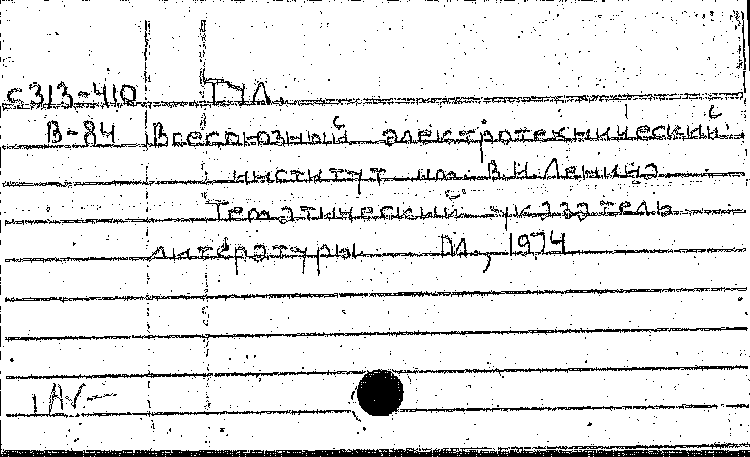 с313-410 ГУЛ.
В-84 Всесоюзный электротехнический
институт им. В.И.Ленина
Тематический указатель
литературы М., 1974